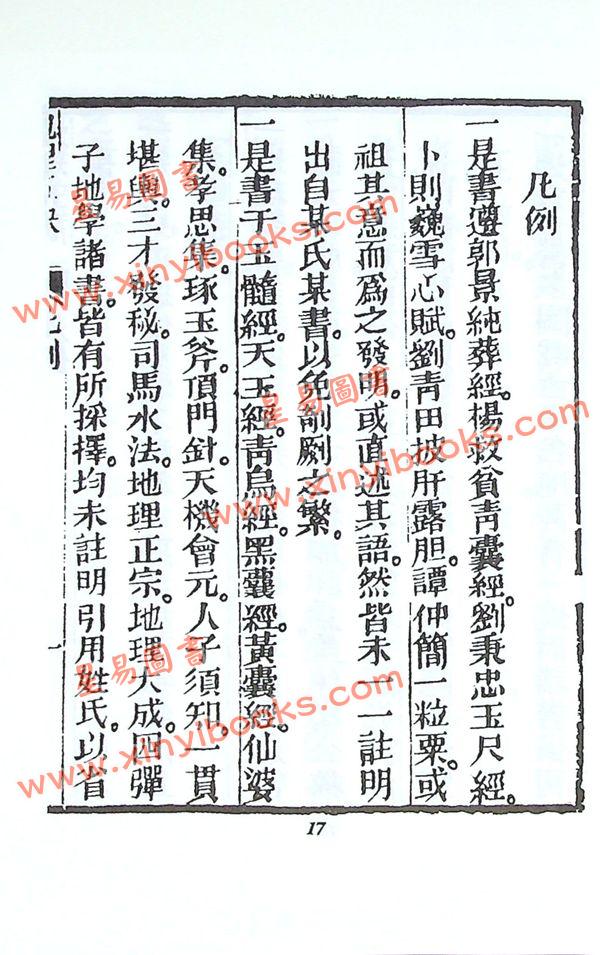 凡例
一是書遵郭景純葬經。楊救貧青囊經。劉秉忠玉尺經。
卜則巍雪心賦。劉青田披肝露胆。譚仲簡一粒粟。或
祖其意而爲之發明。或直述其語。然皆未一一註明
出自某氏某書。以免剞劂之繁。
一是書于玉髓經。天玉經。青烏經。黑囊經。黃囊經。仙婆
集。孝思集。琢玉斧。頂門針。天機會元。人子須知。一貫
堪輿。三才發秘。司馬水法。地理正宗。地理大成。四彈
子地學諸書。皆有所採擇。均未註明引用姓氏。以省
凡例
一
17
星易圖書
www.xinyibooks.com
星易圖書
www.xinyibooks.com
星易圖書
www.xinyibooks.com